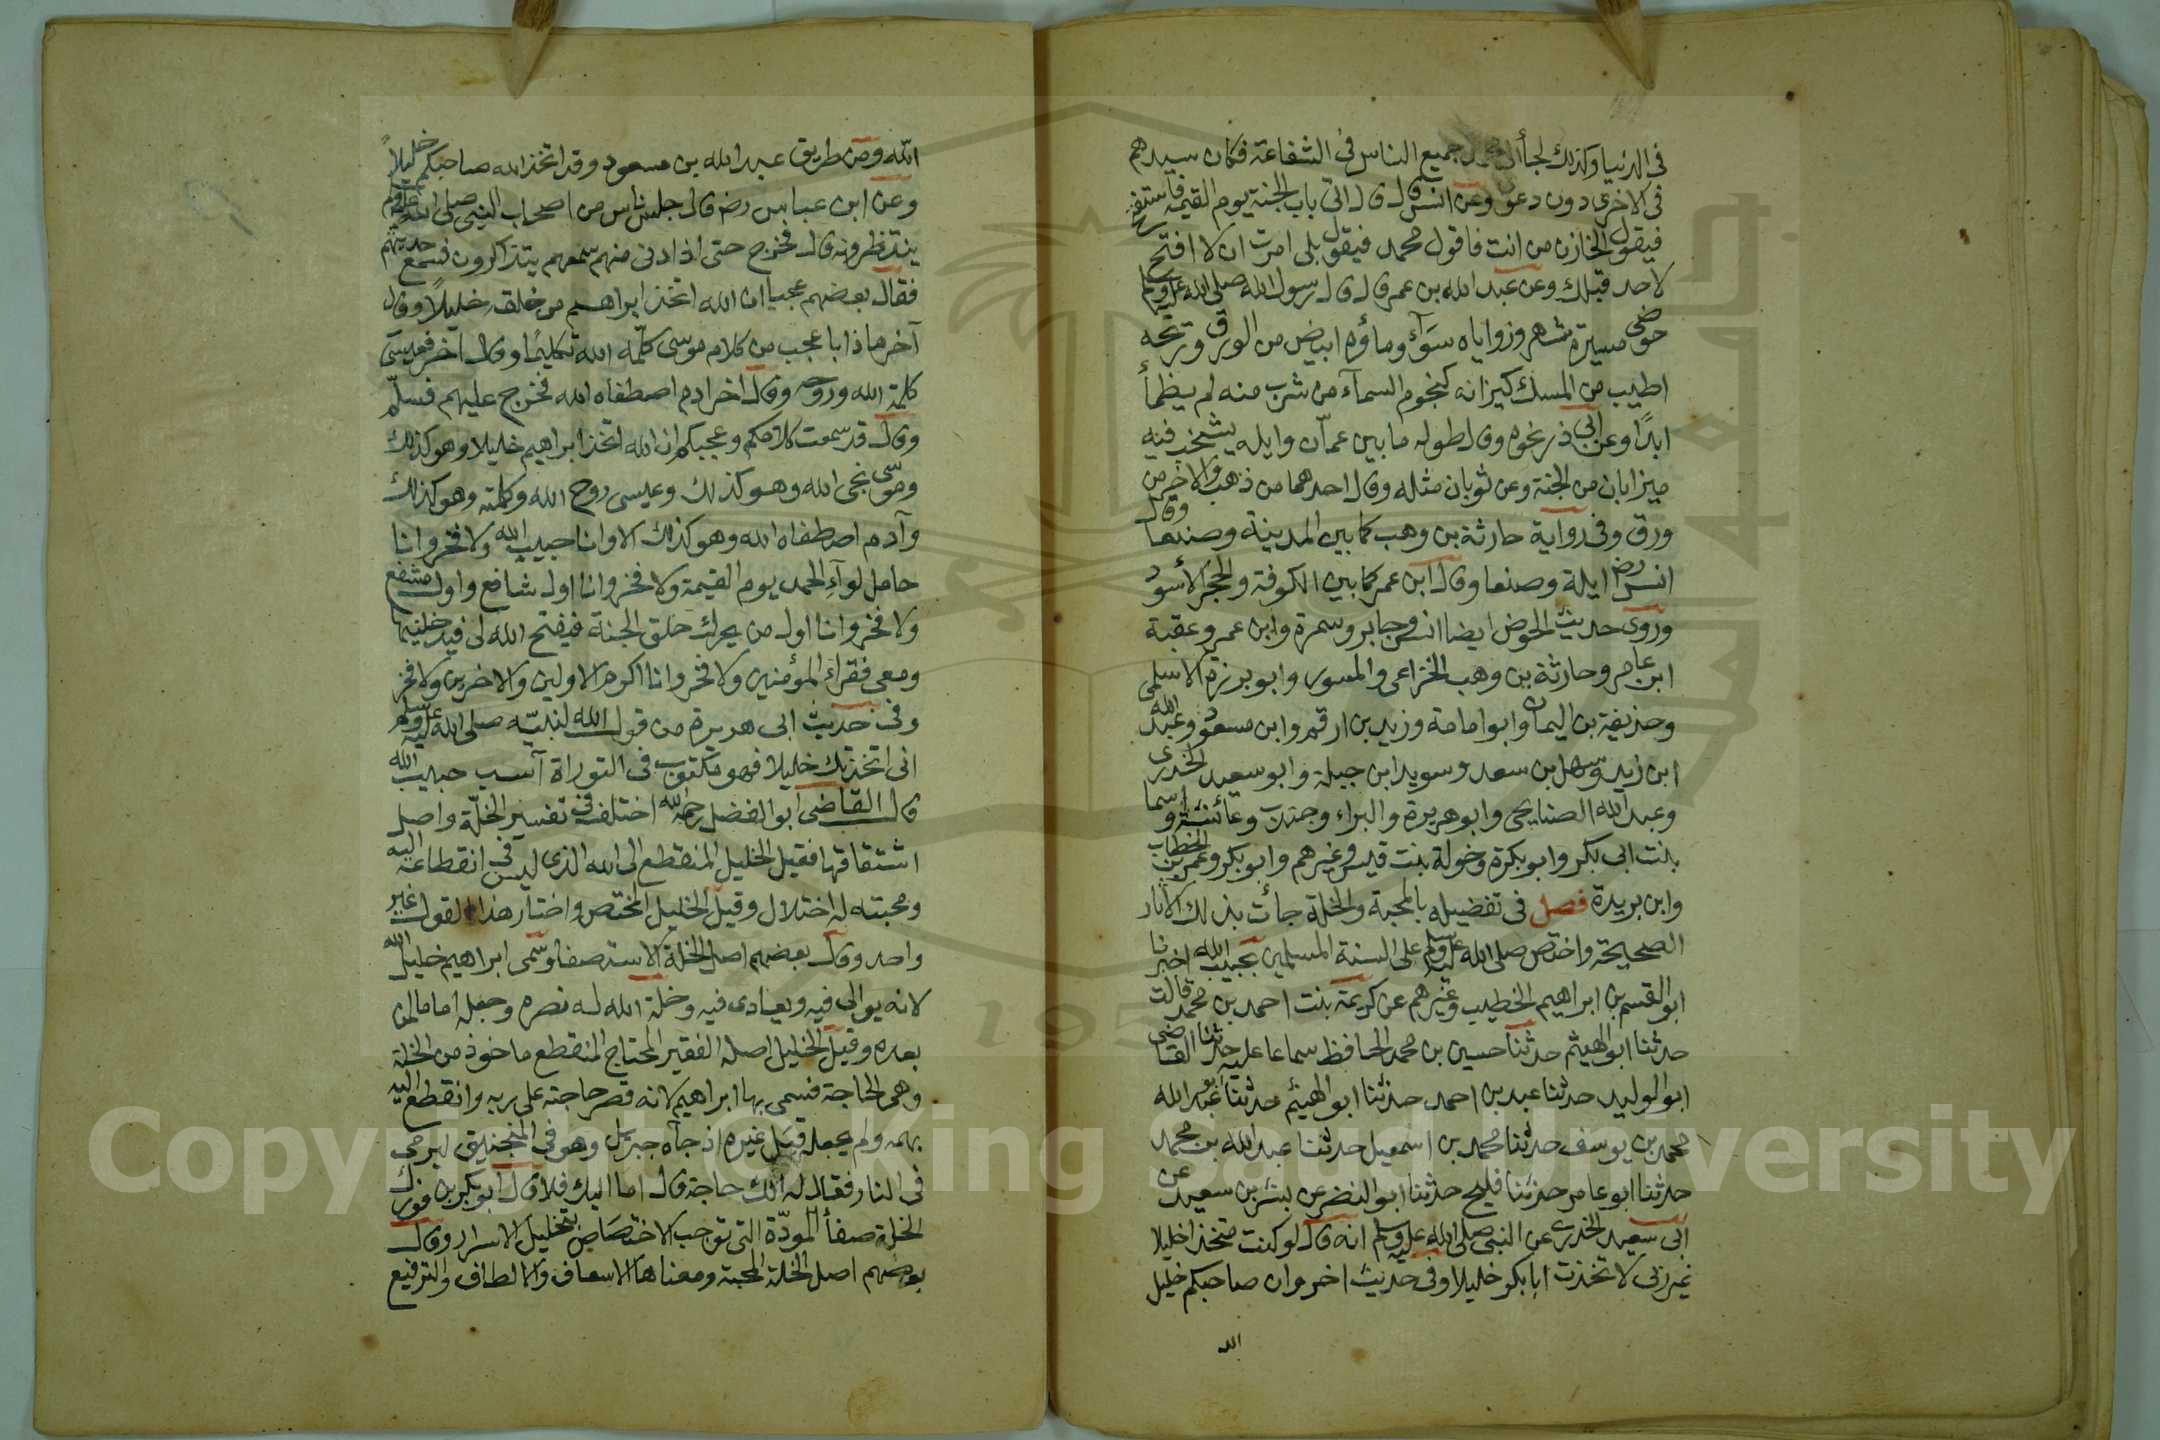 في الدنيا وكذلك لجأ الى محمد جميع الناس في الشفاعة فكان سيدهم
في الاخرى دون دعوى وعن انس قال قال اتى باب الجنة يوم القيمة فاستفتح
فيقول الخازن من انت فاقول محمد فيقول بلى امرت ان لا افتح
لاحد قبلك وعن عبد الله بن عمر قال قال رسول الله صلى الله عليه وسلم
حوضى مسيرة شهر وزواياه سوآء وماؤه ابيض من الورق وريحه
اطيب من المسك كيزانه كنجوم السمآء من شرب منه لم يظمأ
ابدًا وعن ابى ذر نحوه وقال طوله ما بين عمان وايله يشخب فيه
ميزابان من الجنة وعن ثوبان مثله وقال احدهما من ذهب والاخر من
ورق وفى رواية حارثة بن وهب كما بين المدينة وصنعا وقال
انس رضه ايلة وصنعا وقال ابن عمر كما بين الكوفة والحجر الأسود
وروى حديث الحوض ايضا انس وجابر وسمرة وابن عمر وعقبة
ابن عامر وحارثة بن وهب الخزاعى والمسور وابو برزة الاسلمى
وحذيفة بن اليمان وابو امامة وزيد بن ارقم وابن مسعود وعبد الله
ابن زيد وسهل بن سعد وسويد ابن جبلة وابو سعيد الخدرى
وعبد الله الصنابحى وابو هريرة والبراء وجندب وعائشة واسما
بنت ابى بكر وابو بكرة وخولة بنت قيس وغيرهم وابو بكر وعمر بن الخطاب
وابن بريدة فصل فى تفضيله بالمحبة والخلة جأت بذلك الآثار
الصحيحة واختص صلى الله عليه وسلم على السنة المسلمين بحبيب الله اخبرنا
ابو القسم بن ابراهيم الخطيب وغيرهم عن كريمة بنت احمد بن محمد قالت
حدثنا ابو الهيثم حدثنا حسين بن محمد الحافظ سماعا عليه حدثنا القاضى
ابو الوليد حدثنا عبد بن احمد حدثنا ابو الهيثم حدثنا ابو عبد الله
محمد بن يوسف حدثنا محمد بن اسمعيل حدثنا عبد الله بن محمد
حدثنا ابو عامر حدثنا فليح حدثنا ابو النضر عن بشر بن سعيد عن
ابى سعيد الخدرى عن النبى صلى الله عليه وسلم انه قال لو كنت متخذا خليلا
غير ربى لاتخذت ابا بكر خليلا وفى حديث اخر وان صاحبكم خليل
الله
الله ومن طريق عبد الله بن مسعود وقد اتخذ الله صاحبكم خليلاً
وعن ابن عباس رضه قال جلس ناس من اصحاب النبى صلى الله عليه وسلم
ينتظرونه قال فخرج حتى اذا دنى منهم سمعهم يتذاكرون فسمع حديثهم
فقال بعضهم عجبا ان الله اتخذ ابراهيم من خلقه خليلاً وقال
آخر ماذا باعجب من كلام موسى كلمه الله تكليمًا وقال آخر فعيسى
كلمة الله وروحه وقال اخر ادم اصطفاه الله فخرج عليهم فسلّم
وقال قد سمعت كلامكم وعجبكم ان الله اتخذ ابراهيم خليلا وهو كذلك
وموسى نجى الله وهو كذلك وعيسى روح الله وكلمته وهو كذلك
وآدم اصطفاه الله وهو كذلك الا وانا حبيب الله ولا فخر وانا
حامل لوآءِ الحمد يوم القيمة ولا فخر وانا اول شافع واول مشفع
ولا فخر وانا اول من يحرك حلق الجنة فيفتح الله لى فيدخلنيها
ومعى فقراء المؤمنين ولا فخر وانا اكرم الاولين والاخرين ولا فخر
وفى حديث ابى هريرة من قول الله لنبيّه صلى الله عليه وسلم
انى اتخذتك خليلا فهو مكتوب فى التوراة آسب حبيب الله
قال القاضى ابو الفضل رحمه الله اختلف فى تفسير الخلّة واصل
اشتقاقها فقيل الخليل المنقطع الى الله الذى ليس فى انقطاعه اليه
ومحبته له اختلال وقيل الخليل المختص واختار هذا القول غير
واحد وقال بعضهم اصل الخلة الاستصفا وسمى ابراهيم خليل الله
لانه يوالى فيه ويعادى فيه وخلة الله له نصره وجعله اماما لمن
بعده وقيل الخليل اصله الفقير المحتاج المنقطع ماخوذ من الخلة
وهى الحاجة فسمى بها ابراهيم لانه قصر حاجته على ربه وانقطع اليه
بهمه ولم يجعله قبل غيره اذ جآه جبريل وهو فى المنجنيق ليرمى
فى النار فقال له الك حاجة قال اما اليك فلا قال ابو بكر بن فورك
الخلة صفأ المودّة التى توجب الاختصاص بتخليل الاسرار وقال
بعضهم اصل الخلة المحبة ومعناها الاسعاف والالطاف والترفيع
Copyright © King Saud University